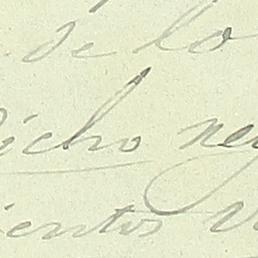 de lo
icho neg
ientos v